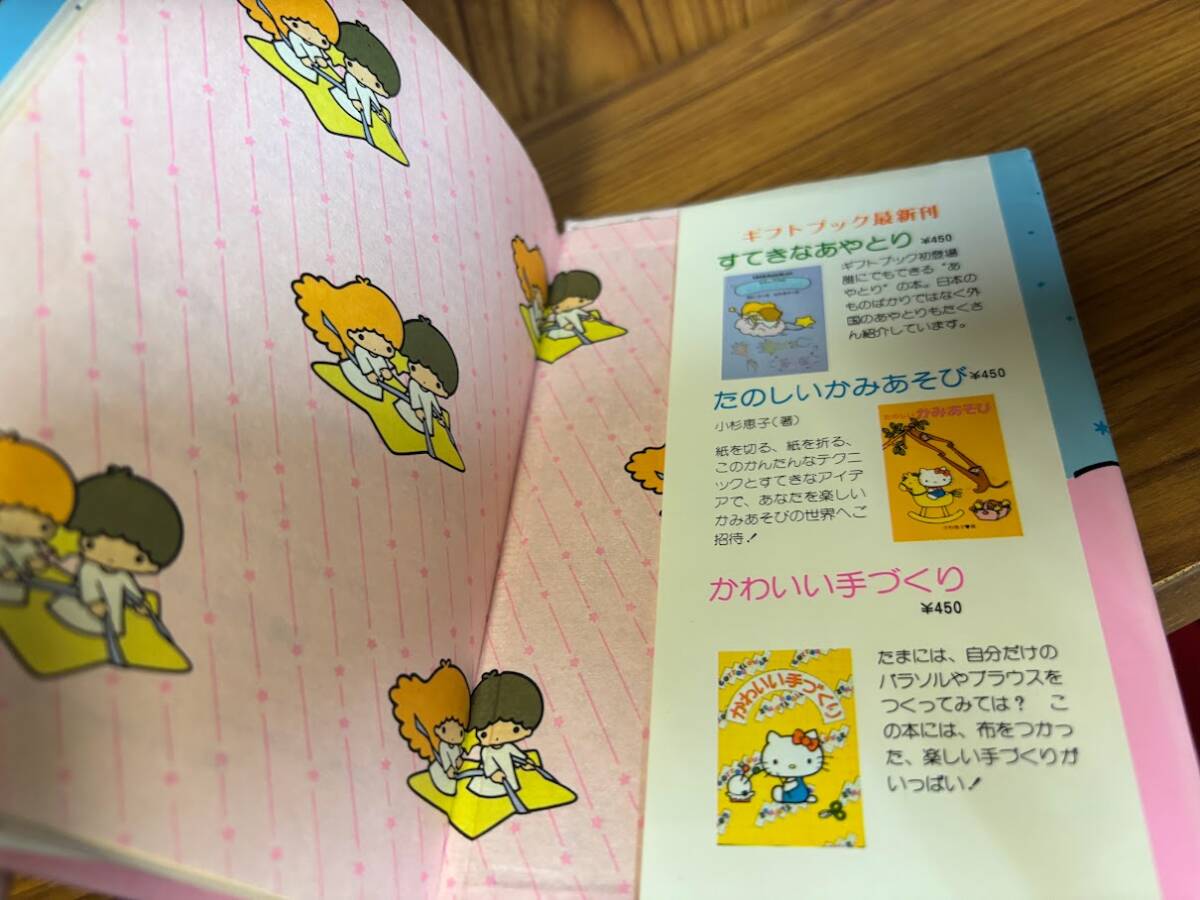 ギフトブック最新刊
すてきなあやとり ¥450
ギフトブック初登場
誰にでもできる“あ
やとり”の本。日本の
ものばかりではなく外
国のあやとりもたくさ
ん紹介しています。
たのしいかみあそび ¥450
小杉恵子(著)
紙を切る、紙を折る、
このかんたんなテクニ
ックとすてきなアイデ
アで、あなたを楽しい
かみあそびの世界へご
招待!
たのしいかみあそび
かわいい手づくり
¥450
かわいい手づくり
たまには、自分だけの
パラソルやブラウスを
つくってみては? こ
の本には、布をつかっ
た、楽しい手づくりが
いっぱい!